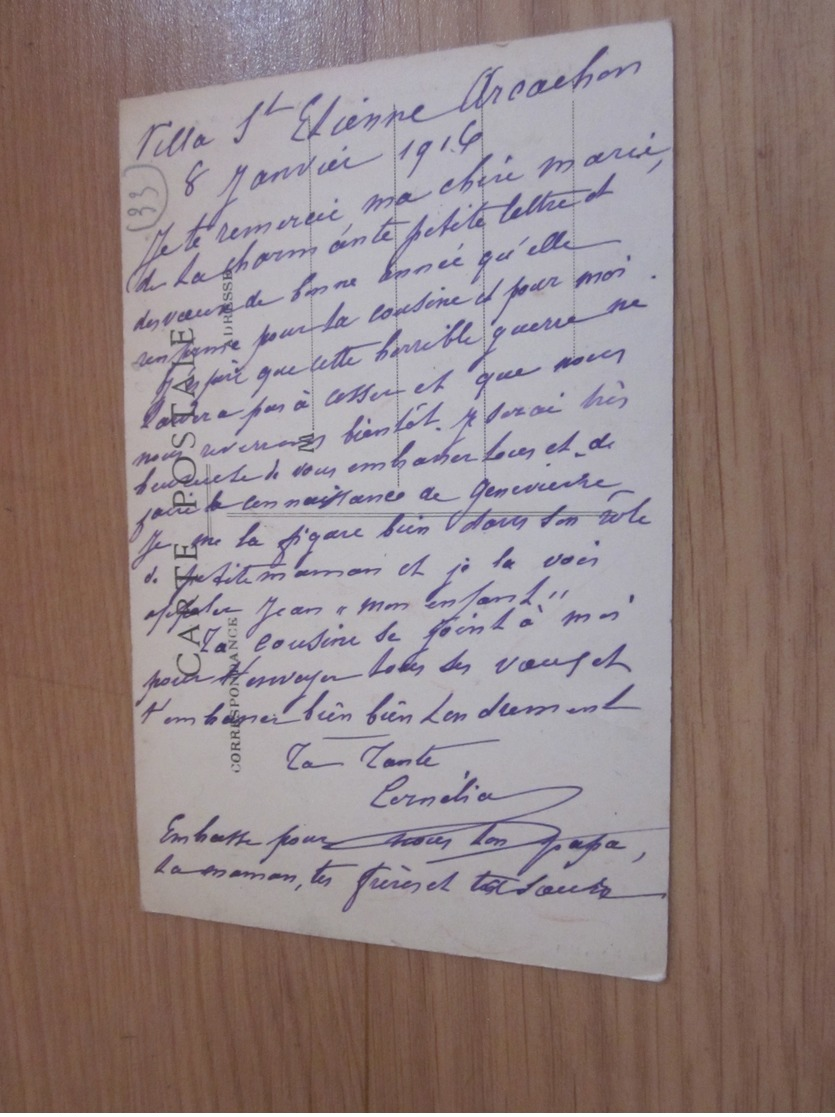 Villa St Etienne Arcachon
8 Janvier 1916
(33)
Je te remercie ma chère marie,
de ta charmante petite lettre et
des vœux de bonne année qu'elle
renferme pour ta cousine et pour moi.
J'espère que cette horrible guerre ne
tardera pas à cesser et que nous
nous reverrons bientôt. Je serai très
heureuse de vous embrasser tous et de
faire la connaissance de Geneviève
Je me la figure bien dans son rôle
de petite maman et je la vois
appeler Jean "mon enfant"
Ta cousine se joint à moi
pour t'envoyer tous ses vœux et
t'embrasser bien bien tendrement
Ta Tante
Cornélia
Embrasse pour nous ton papa,
ta maman, tes frères et ta sœur
CARTE POSTALE
CORRESPONDANCE
ADRESSE
M